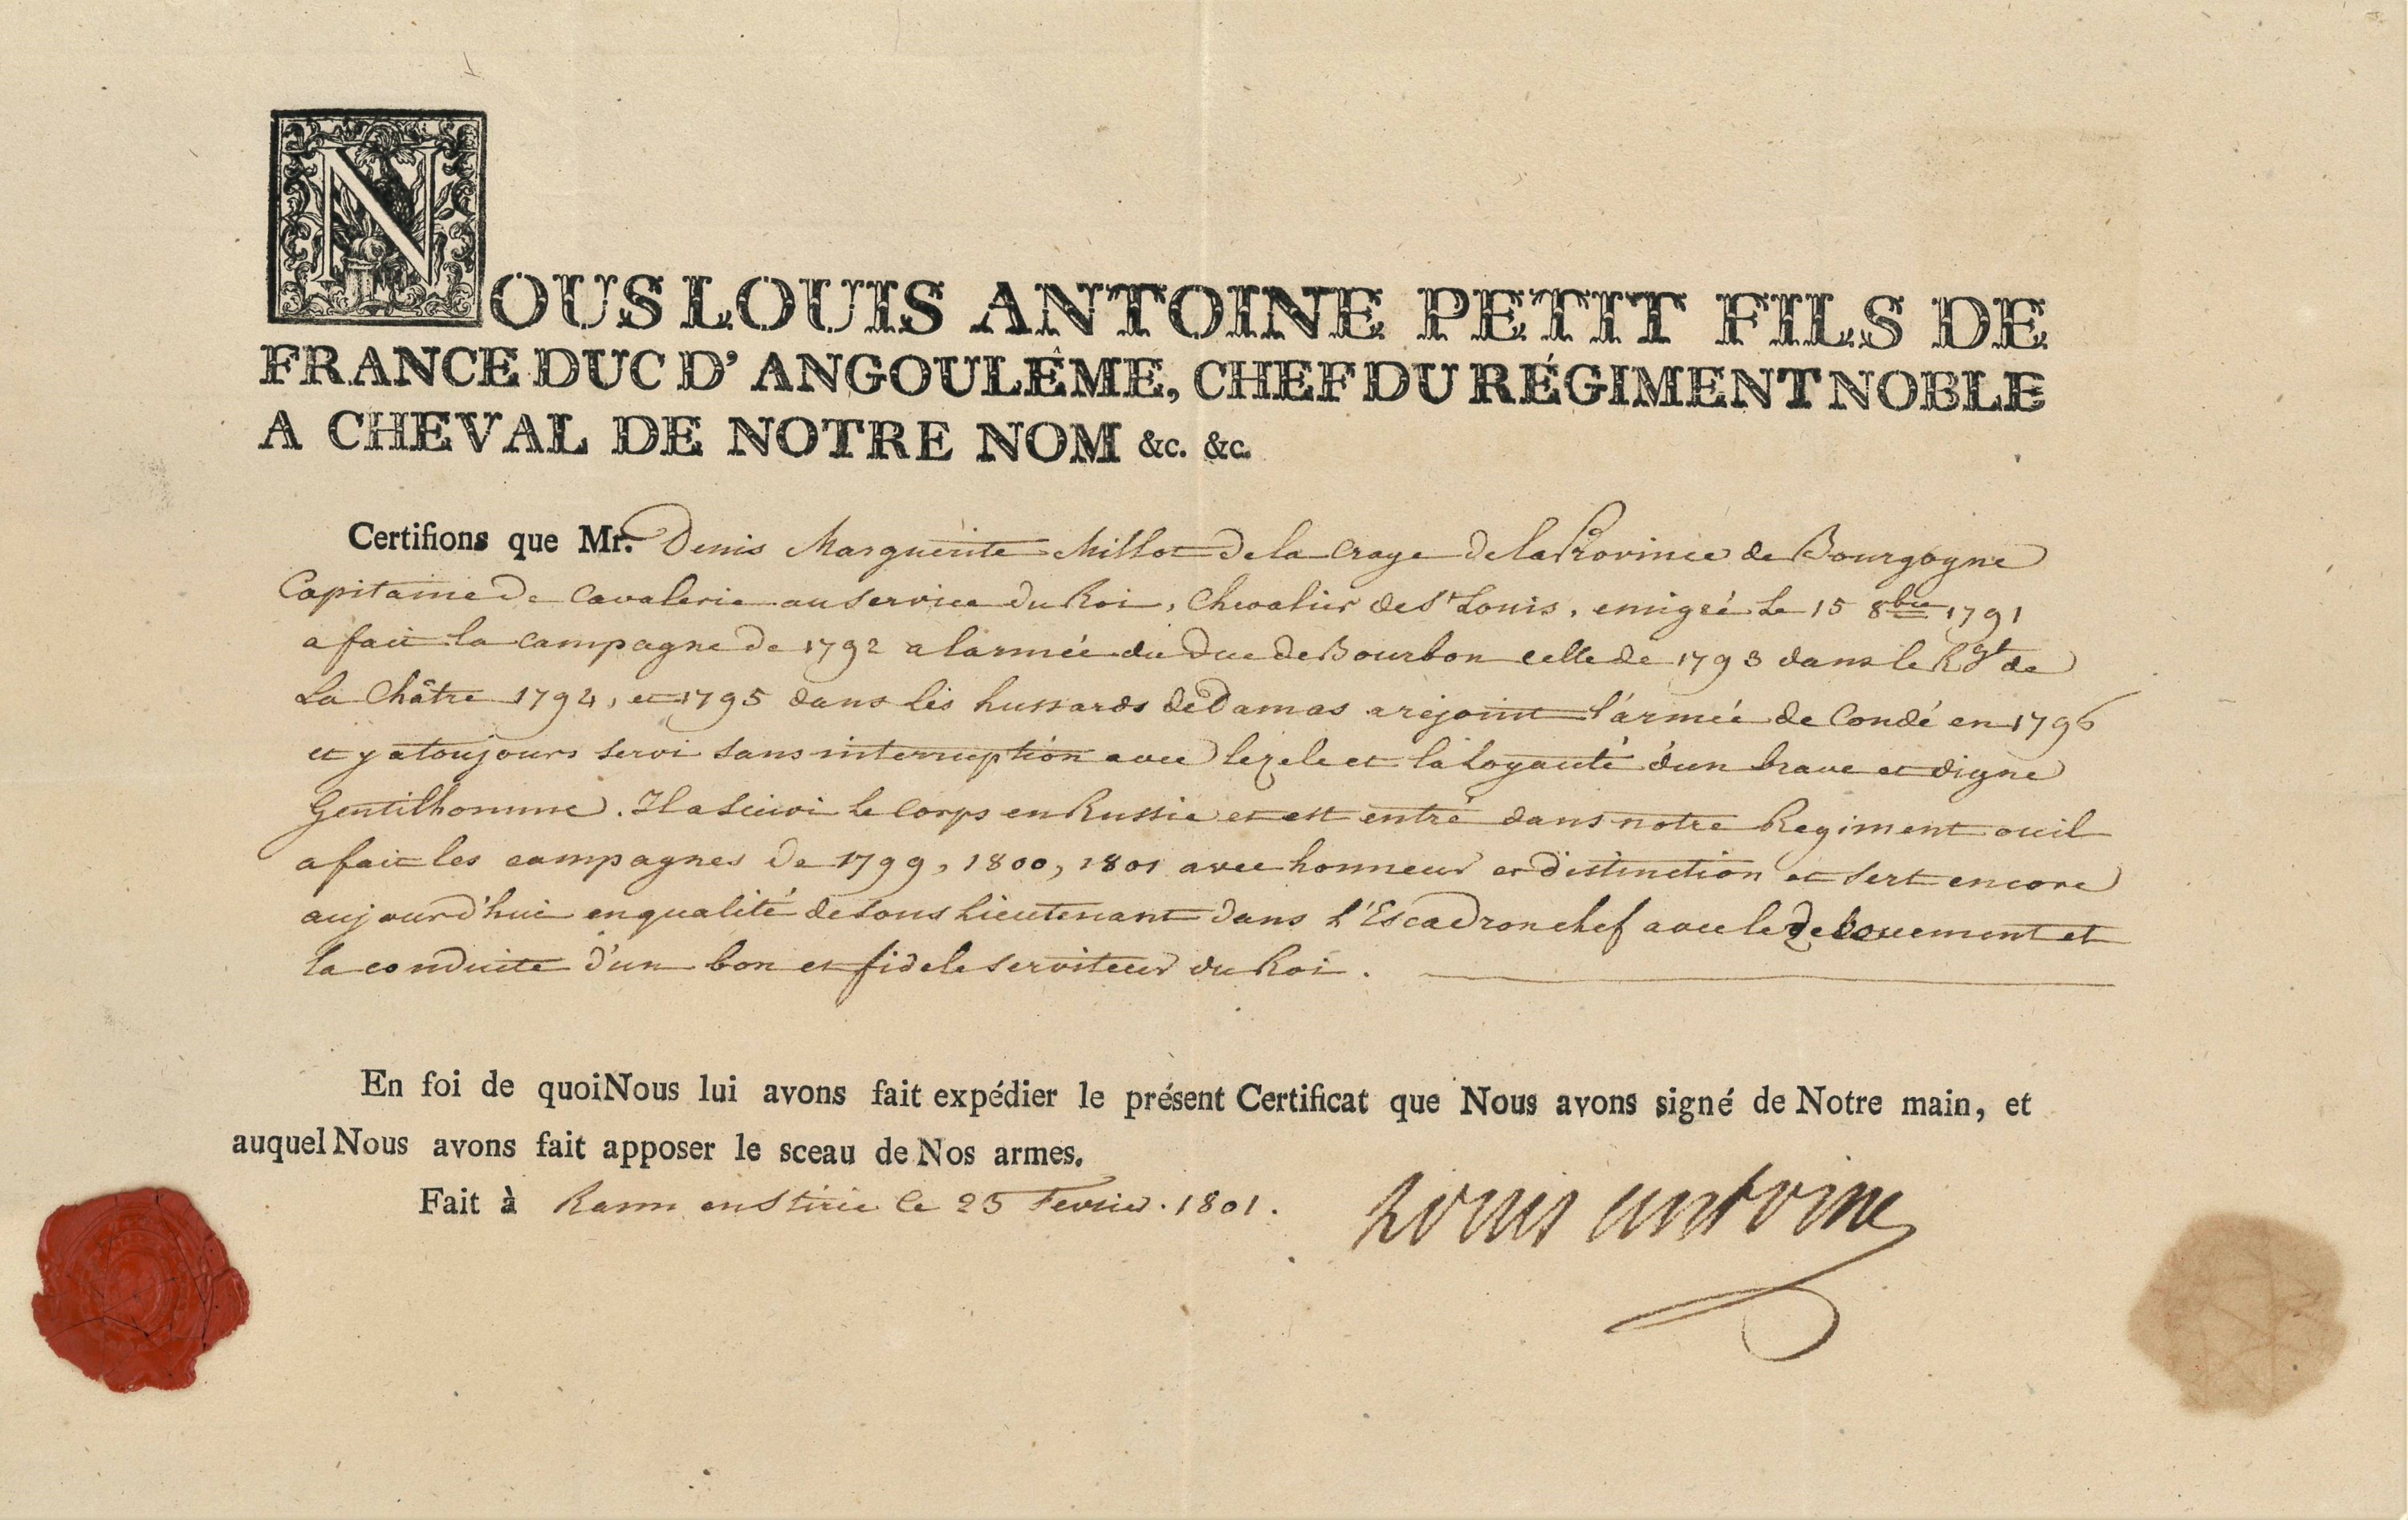 NOUS LOUIS ANTOINE PETIT FILS DE
FRANCE DUC D'ANGOULÊME, CHEF DU RÉGIMENT NOBLE
A CHEVAL DE NOTRE NOM &c. &c.
Certifions que Mr. Denis Marguerite Millot de la Craye de la Province de Bourgogne
Capitaine de Cavalerie au service du Roi, Chevalier de St Louis, emigré le 15 8bre 1791
a fait la campagne de 1792 a larmée du Duc de Bourbon celle de 1793 dans le Rgt de
La Châtre 1794, et 1795 dans les hussards de Damas a rejoint l'armée de Condé en 1796
et y a toujours servi sans interruption avec le zele et la Loyauté d'un brave et digne
Gentilhomme. Il a suivi le Corps en Russie et est entré dans notre Regiment ou il
a fait les campagnes de 1799, 1800, 1801 avec honneur et distinction et sert encore
aujourd'hui en qualité de sous Lieutenant dans l'Escadron chef avec le devouement et
la conduite d'un bon et fidele serviteur du Roi.
En foi de quoi Nous lui avons fait expédier le présent Certificat que Nous avons signé de Notre main, et
auquel Nous avons fait apposer le sceau de Nos armes.
Fait à Rann en Stirie le 25 Fevrier. 1801.
Louis antoine